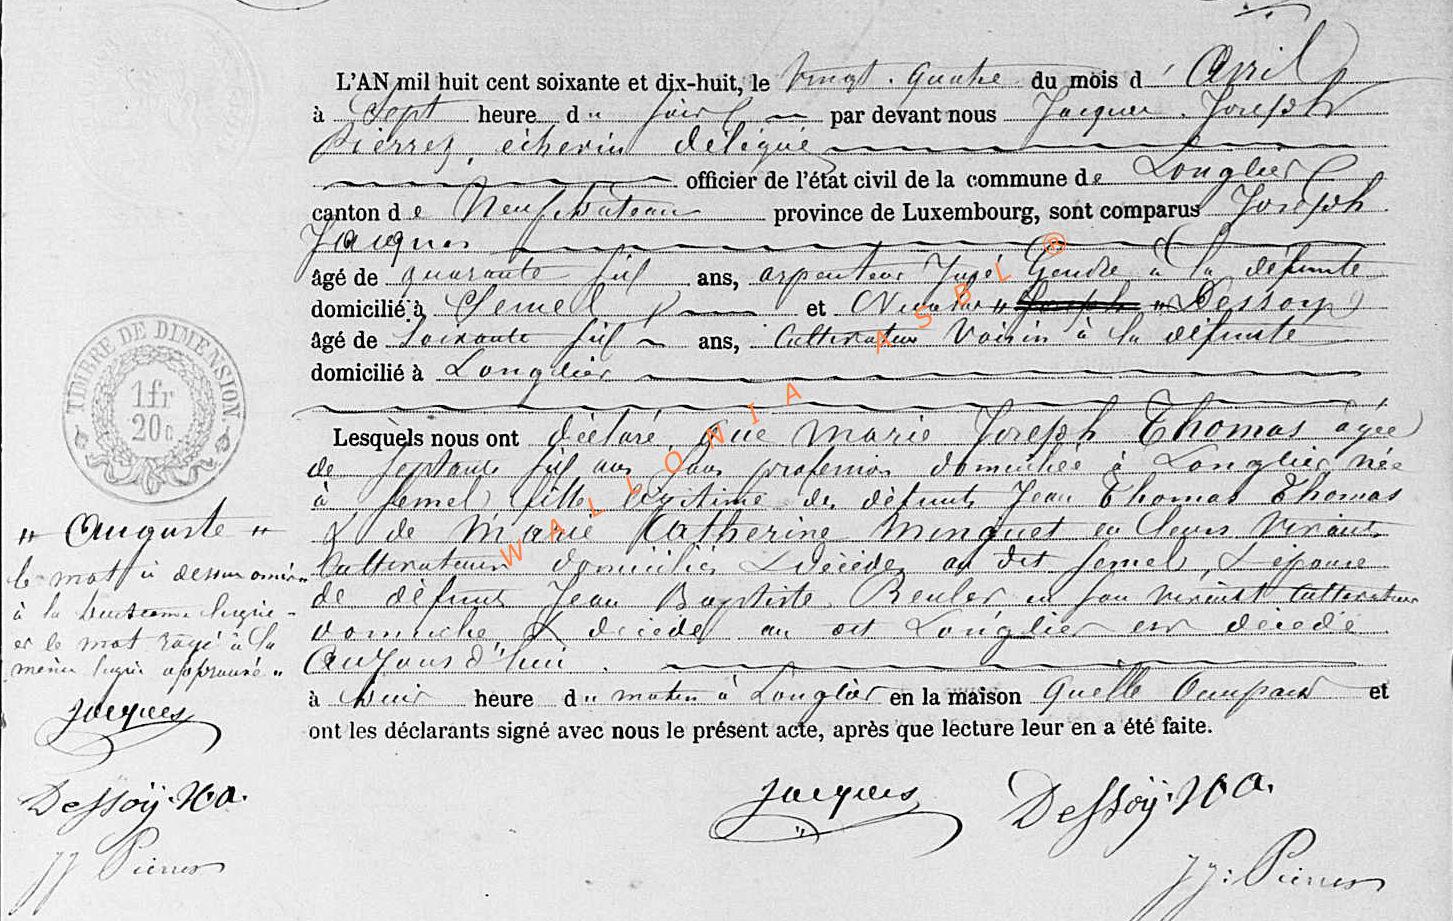 L'AN mil huit cent soixante et dix-huit, le Vingt-quatre du mois d'Avril
à Sept heure du soir par devant nous Jacques Joseph
Pierres, échevin délégué
officier de l'état civil de la commune de Longlier
canton de Neufchateau province de Luxembourg, sont comparus Joseph
Jacques
âgé de quarante six ans, arpenteur Juré Gendre à la défunte
domicilié à Semel et Nicolas " Joseph " Dessoy
âgé de soixante six ans, Cultivateur Voisin à la défunte
domicilié à Longlier
Lesquels nous ont déclaré, que Marie Joseph Thomas agée
de septante six ans sans profession domiciliée à Longlier née
à Semel fille légitime des défunts Jean Thomas Thomas
& de Marie Katherine Minguet en leurs vivants
Cultivateurs domiciliés & décédés au dit Semel, & épouse
de défunt Jean Baptiste Reuler en son vivant Cultivateur
domicilié & décédé au dit Longlier est décédé
Aujourd'hui
à huit heure du matin à Longlier en la maison Quelle Occupait et
ont les déclarants signé avec nous le présent acte, après que lecture leur en a été faite.
Jacques Dessoÿ. N A.
JJ: Pierres
TIMBRE DE DIMENSION
1fr
20c
" Auguste "
le mot ci dessus omis
à la huitieme ligne
et le mot rayé à la
meme ligne approuvé "
Jacques
Dessoÿ. N A.
JJ Pierres
WALLONIA ASBL ®